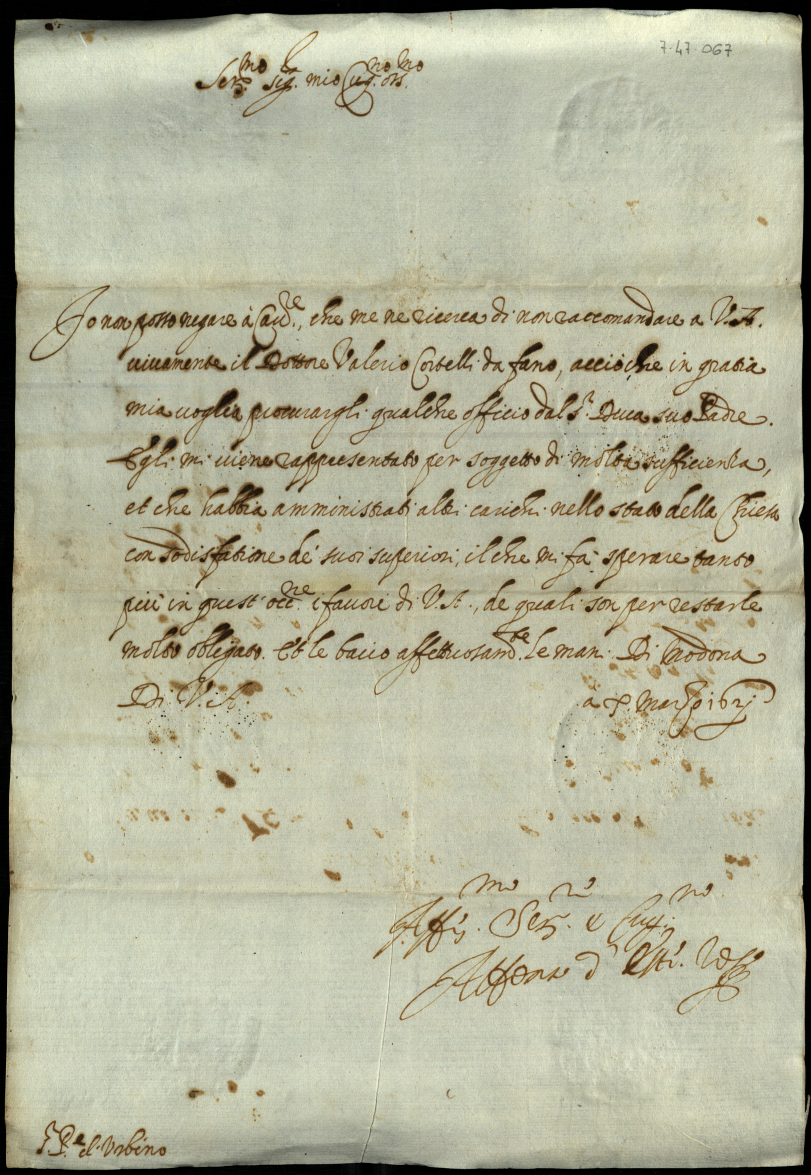 7-47-067
Ser.mo Sig.r mio Cug.no oss.mo
Io non posso negare à Cav.re, che me ne ricerca di non raccomandare a V.A.
vivamente il Dottore Valerio Corbelli da fano, acciò che in gratia
mia voglia procurargli qualche officio dal S.r Duca suo Padre.
Egli mi viene rappresentato per soggetto di molta sufficienza,
et che habbia amministrati altri carichi nello stato della Chiesa
con sodisfatione de' suoi superiori, il che mi fà sperare tanto
più in quest' occ.ne i favori di V.A., de quali son per restarle
molto obligato. Et le bacio affettuosam.te le mani. Di Modona
Di V.A. a Marzo 1621
Aff.mo Ser.re e Cug.no
Alfonso d'Este
S. P.e d'Urbino